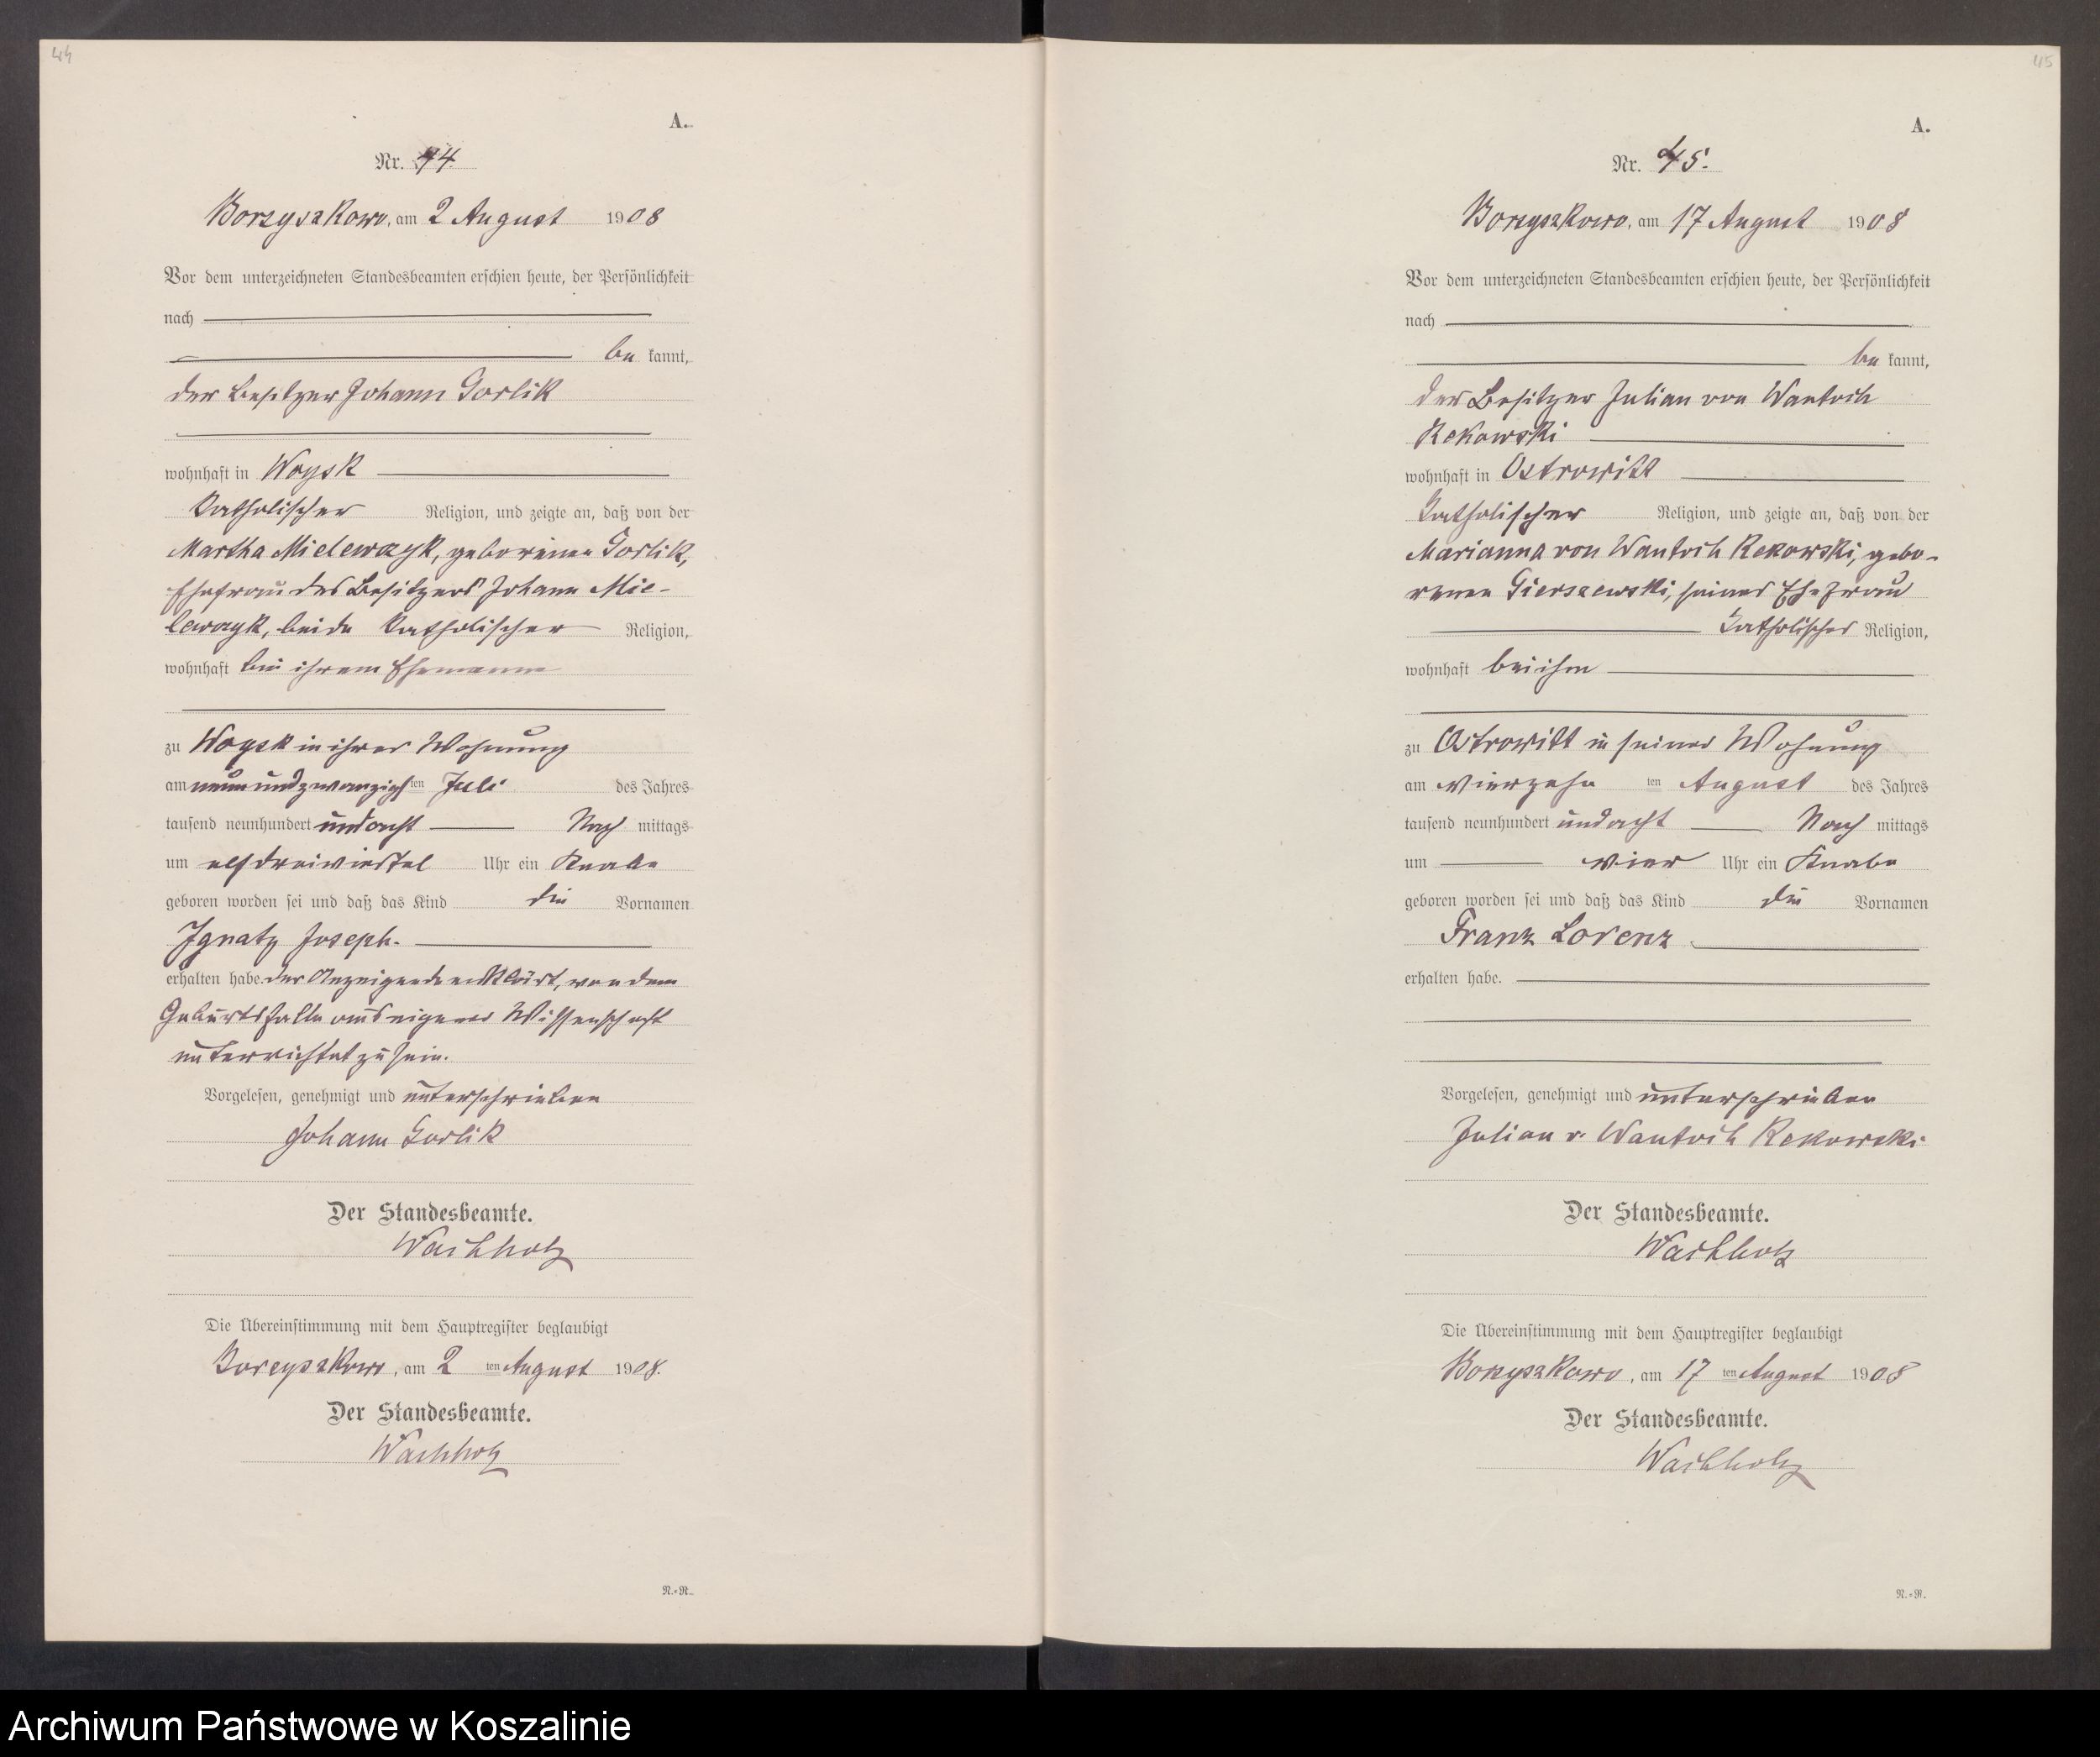 44
A.
Nr. 44.
Borzyszkowo, am 2 August 1908
Vor dem unterzeichneten Standesbeamten erschien heute, der Persönlichkeit
nach
be kannt,
der Besitzer Johann Gorlik
wohnhaft in Woysk
katholischer Religion, und zeigte an, daß von der
Martha Mielewczyk, geborenen Gorlik,
Ehefrau des Besitzers Johann Mie-
lewczyk, beide katholischer Religion,
wohnhaft bei ihrem Ehemanne
zu Woysk in ihrer Wohnung
am neunundzwanzigsten Juli des Jahres
tausend neunhundert und acht Nach mittags
um elfdreiviertel Uhr ein Knabe
geboren worden sei und daß das Kind die Vornamen
Ignatz Joseph.
erhalten habe. Der Anzeigende erklärt, von dem
Geburtsfalle aus eigener Wissenschaft
unterrichtet zu sein.
Vorgelesen, genehmigt und unterschrieben
Johann Gorlik
Der Standesbeamte.
Wachholz
Die Übereinstimmung mit dem Hauptregister beglaubigt
Borzyszkowo, am 2 ten August 1908.
Der Standesbeamte.
Wachholz
N.=R.
45
A.
Nr. 45.
Borzyszkowo, am 17 August 1908
Vor dem unterzeichneten Standesbeamten erschien heute, der Persönlichkeit
nach
be kannt,
der Besitzer Julian von Wantoch
Rekowski
wohnhaft in Ostrowitt
katholischer Religion, und zeigte an, daß von der
Marianna von Wantoch Rekowski, gebo-
renen Gierszewski, seiner Ehefrau
katholischer Religion,
wohnhaft bei ihm
zu Ostrowitt in seiner Wohnung
am vierzehn ten August des Jahres
tausend neunhundert und acht Nach mittags
um vier Uhr ein Knabe
geboren worden sei und daß das Kind die Vornamen
Franz Lorenz
erhalten habe.
Vorgelesen, genehmigt und unterschrieben
Julian v. Wantoch Rekowski
Der Standesbeamte.
Wachholz
Die Übereinstimmung mit dem Hauptregister beglaubigt
Borzyszkowo, am 17 ten August 1908
Der Standesbeamte.
Wachholz
N.=R.
Archiwum Państwowe w Koszalinie